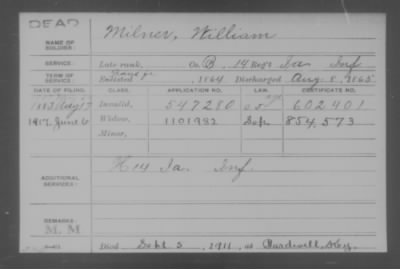 DEAD
NAME OF SOLDIER: Milner, William
SERVICE: Late rank, Co. B, 14 Reg't Ia Inf
TERM OF SERVICE: Enlisted 1864 Discharged Aug. 8, 1865
DATE OF FILING. CLASS. APPLICATION NO. LAW. CERTIFICATE NO.
Invalid, 547280 602401
1917 June 6 Widow, 1101982 854,573
Minor,
ADDITIONAL SERVICES: H 14 Ia. Inf.
REMARKS:
M. M
Died Sept 3, 1911, at Bardwell, Key.